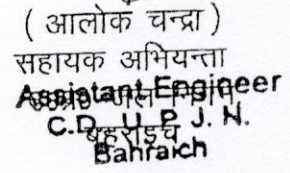 ( आलोक चन्द्रा )
सहायक अभियन्ता
Assistant Engineer
जल
C.D. U. P. J. N.
बहराइच
Bahraich